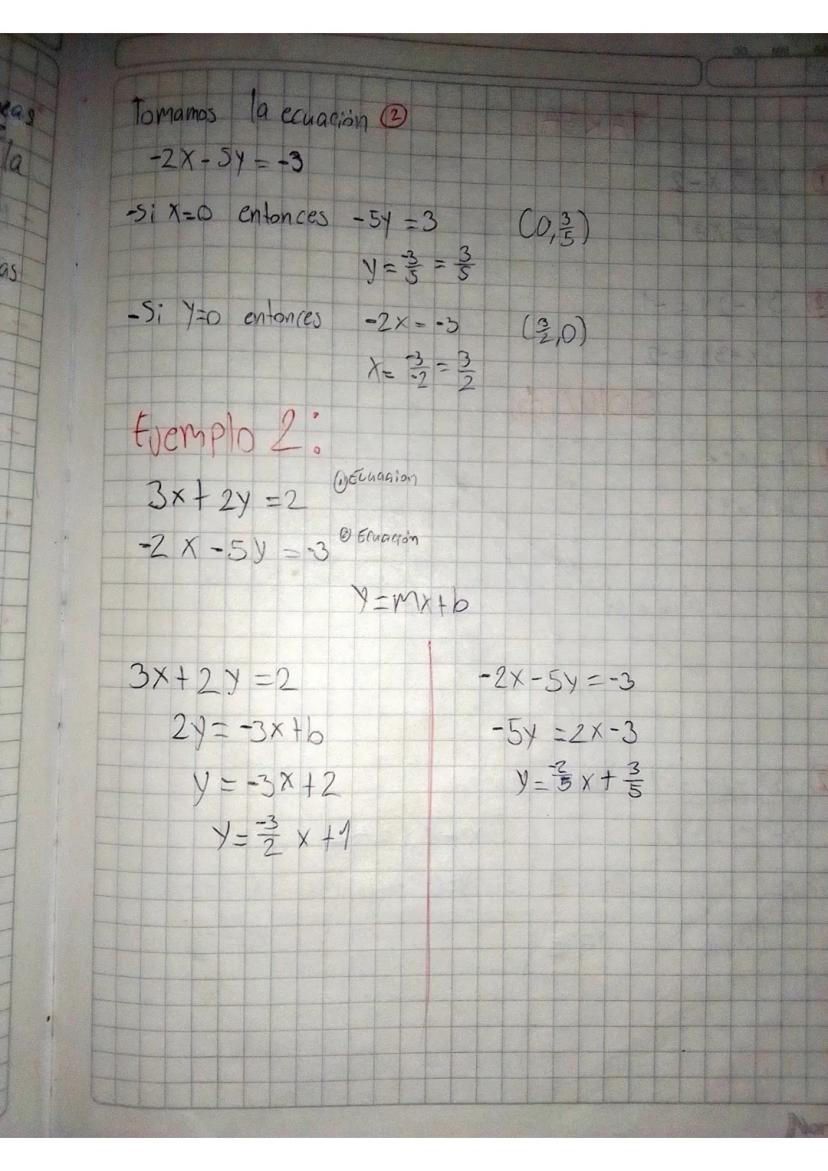 eas
la
as
Tomamos la ecuación ②
-2x - 5y = -3
-Si x=0 entonces -5y = 3 (0, 3/5)
y = -3/5 = 3/5
-Si y=0 entonces -2x = -3 (3/2, 0)
x = -3/-2 = 3/2
Ejemplo 2:
3x + 2y = 2 ① Ecuación
-2x - 5y = -3 ② Ecuación
y = mx + b
3x + 2y = 2
2y = -3x + b
y = -3x + 2
y = -3/2 x + 1
-2x - 5y = -3
-5y = 2x - 3
y = -2/5 x + 3/5
Nor